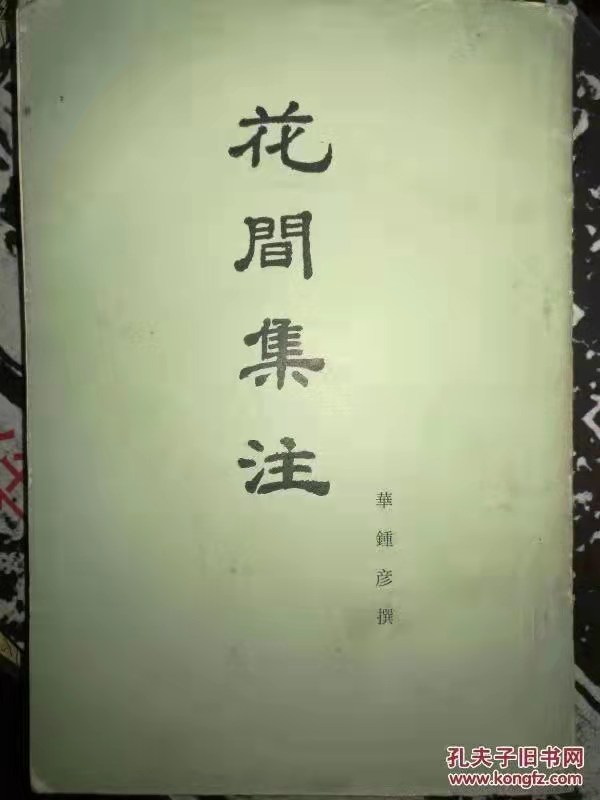 花間集注
華鍾彦撰
孔夫子旧书网
www.kongfz.com